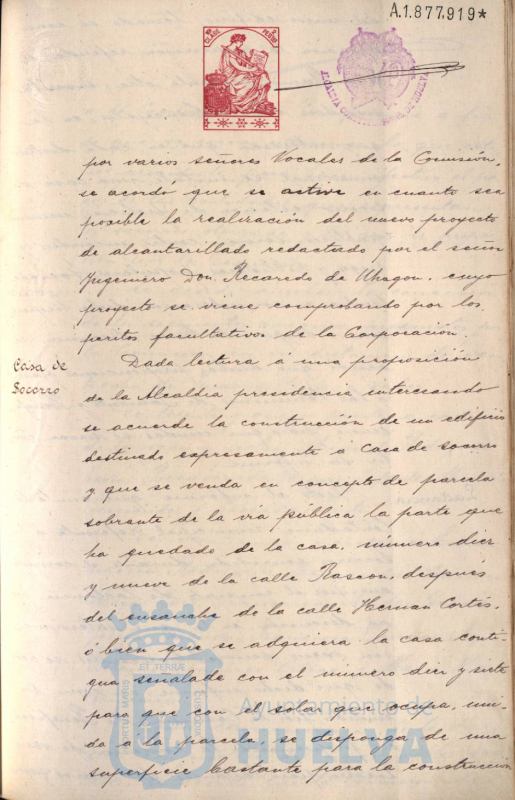 A.1.877.919*
CLASE
por varios señores Vocales de la Comisión,
se acordó que se active en cuanto sea
posible la realización del nuevo proyecto
de alcantarillado redactado por el señor
Yngeniero Don Recaredo de Uhagon, cuyo
proyecto se viene comprobando por los
peritos facultativos de la Corporación.
Casa de
Socorro
Dada lectura á una proposición
de la Alcaldia presidencia interesando
se acuerde la construcción de un edificio
destinado expresamente á Casa de socorro
y que se venda en concepto de parcela
sobrante de la via pública la parte que
ha quedado de la casa, número diez
y nueve de la calle Rascon, después
del ensanche de la calle Hernan Cortés,
ó bien que se adquiera la casa conti-
gua señalada con el número diez y siete
para que con el solar que ocupa, uni-
da á la parcela, se disponga de una
superficie bastante para la construcción
ET TERRÆ
Ayuntamiento de
HUELVA